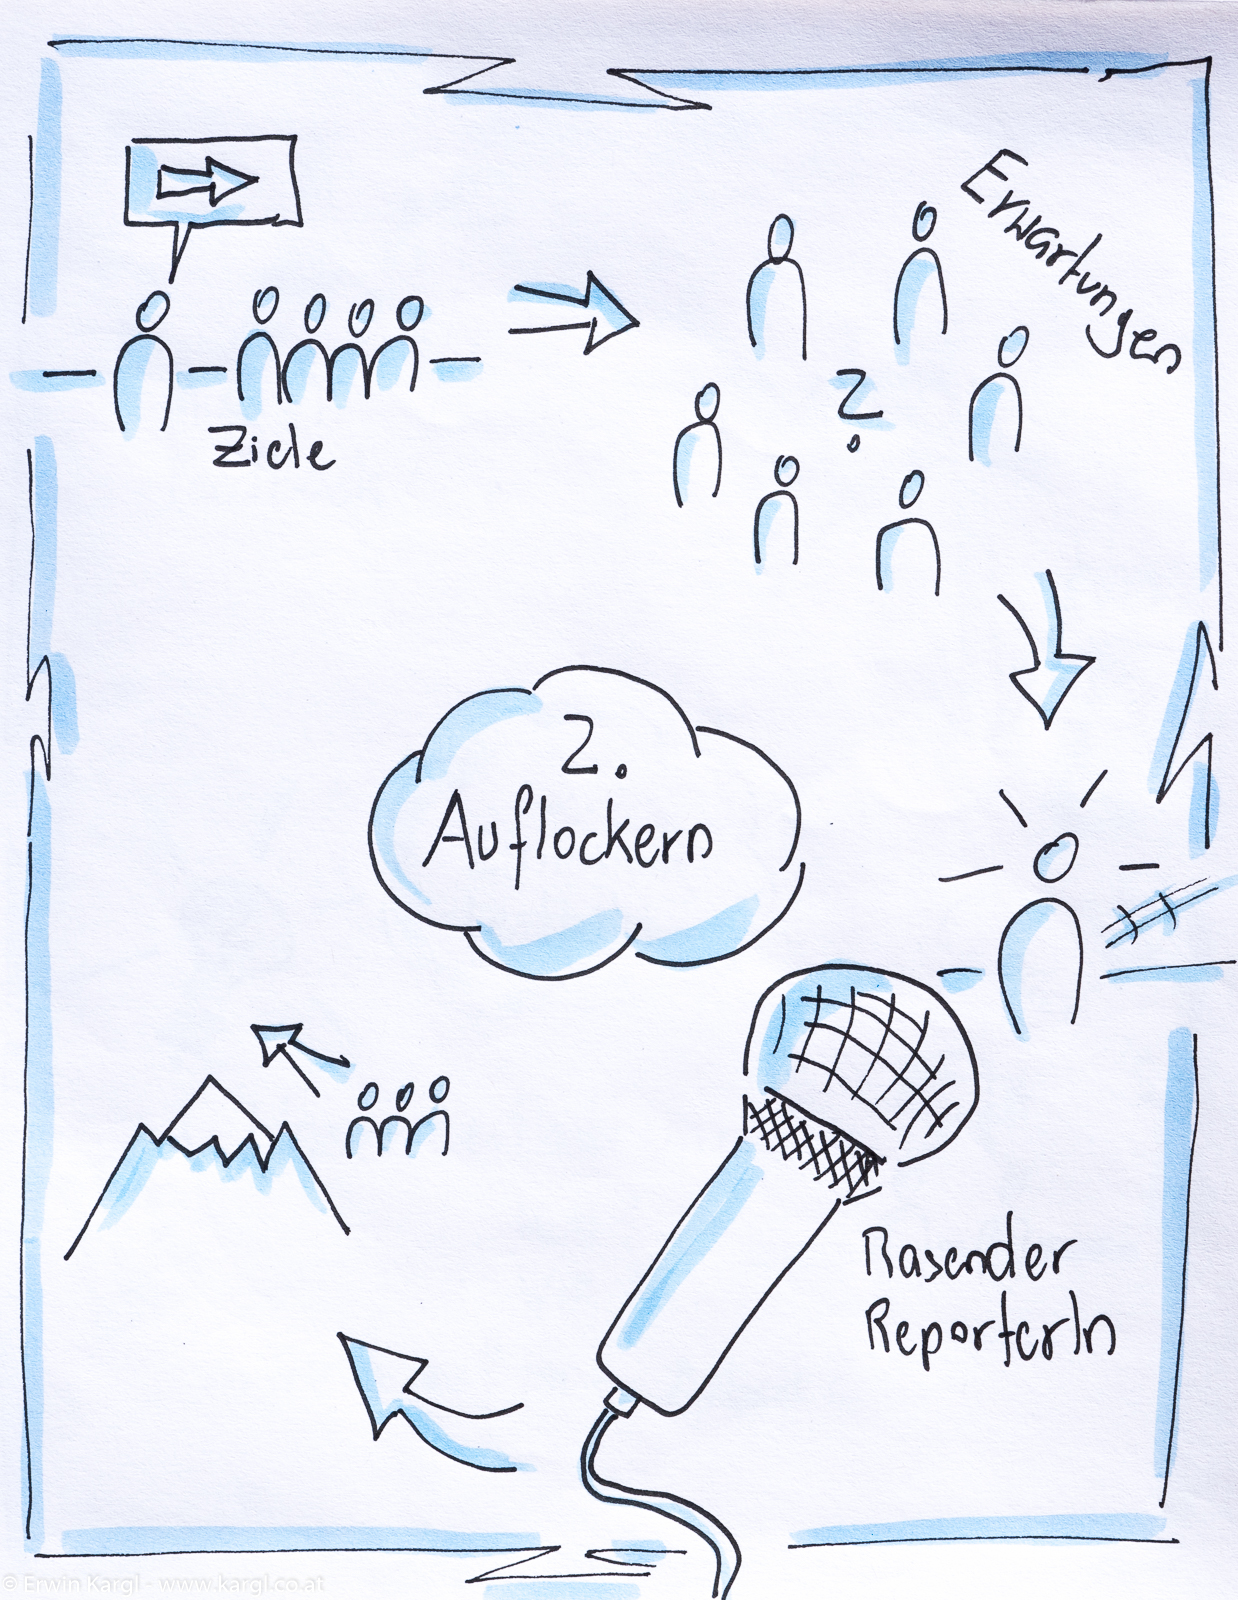 Erwartungen
?
Ziele
2.
Auflockern
Rasender
ReporterIn
© Erwin Kargl - www.kargl.co.at